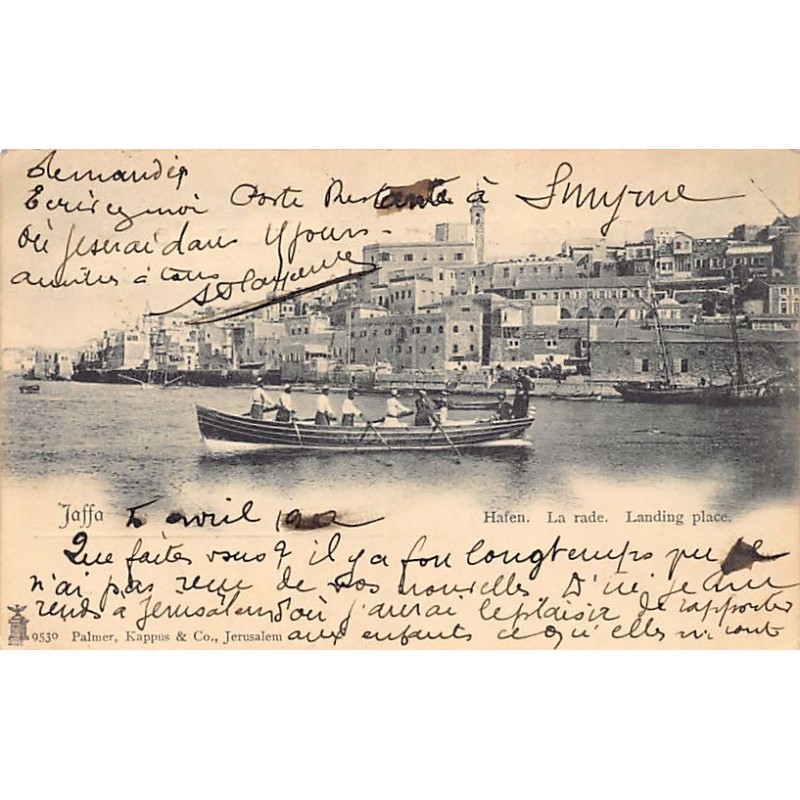 demandés
Ecrivez moi Poste Restante à Smyrne
où je serai dans 4 jours -
amitiés à tous
Jaffa 5 avril 1902
Hafen. La rade. Landing place.
Que faites vous? il y a fou longtemps que je
n'ai pas reçu de vos nouvelles D'ici je me
rends à Jérusalem d'où j'aurai le plaisir de rapporter
aux enfants ce qu'elles m'ont
9530 Palmer, Kappus & Co., Jerusalem